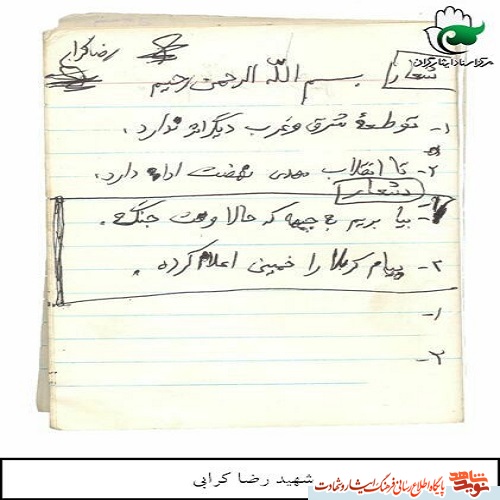 مرکز اسناد ایثارگران
رضا کرابی
شعار
بسم الله الرحمن رحیم
۱- توطعهٔ شرق و غرب دیگر اثر ندارد.
۲- تا انقلاب مهدی نهضت ادامه دارد.
شعار
۱- بیا بریم به جبهه که حالا وقت جنگ.
۲- پیام کربلا را خمینی اعلام کرده.
۱-
۲-
شهید رضا کرابی
نوید شاهد
پایگاه اطلاع رسانی فرهنگ ایثار و شهادت